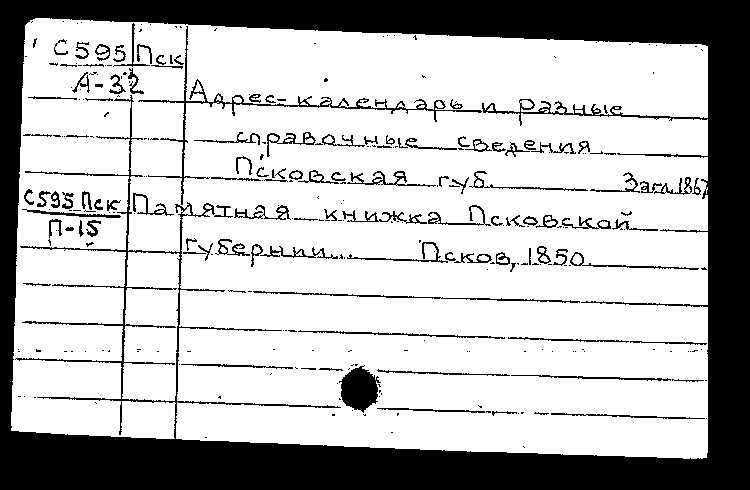 С595 Пск
А-32
Адрес-календарь и разные
справочные сведения
Псковская губ. Загл. 1867
С595 Пск Памятная книжка Псковской
П-15
губернии... Псков, 1850.